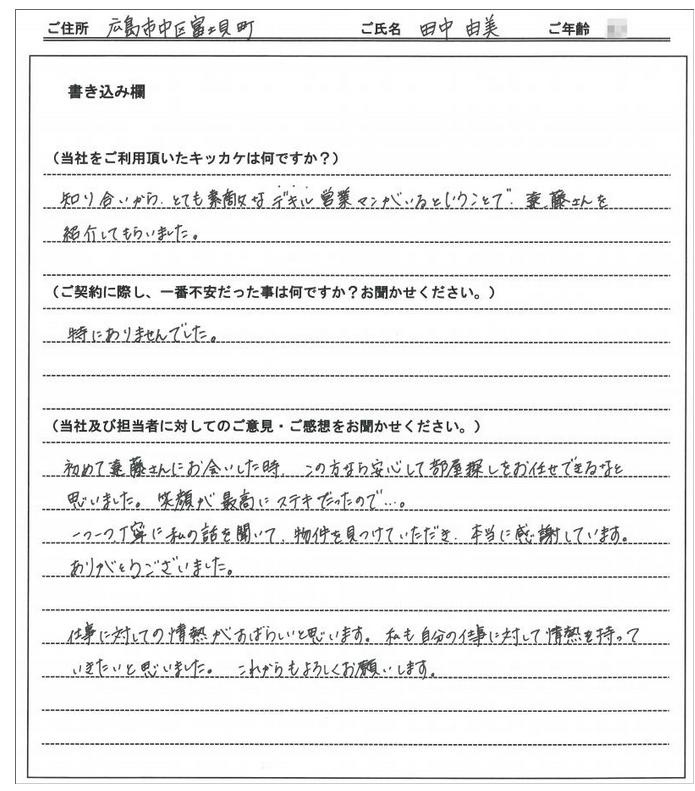 ご住所 広島市中区富士見町 ご氏名 田中 由美 ご年齢
書き込み欄
（当社をご利用頂いたキッカケは何ですか？）
知り合いから、とても素敵なデキル営業マンがいるということで、遠藤さんを
紹介してもらいました。
（ご契約に際し、一番不安だった事は何ですか？お聞かせください。）
特にありませんでした。
（当社及び担当者に対してのご意見・ご感想をお聞かせください。）
初めて遠藤さんにお会いした時、この方なら安心して部屋探しをお任せできるなと
思いました。笑顔が最高にステキだったので…。
一つ一つ丁寧に私の話を聞いて、物件を見つけていただき、本当に感謝しています。
ありがとうございました。
仕事に対しての情熱がすばらしいと思います。私も自分の仕事に対して情熱を持って
いきたいと思いました。これからもよろしくお願いします。